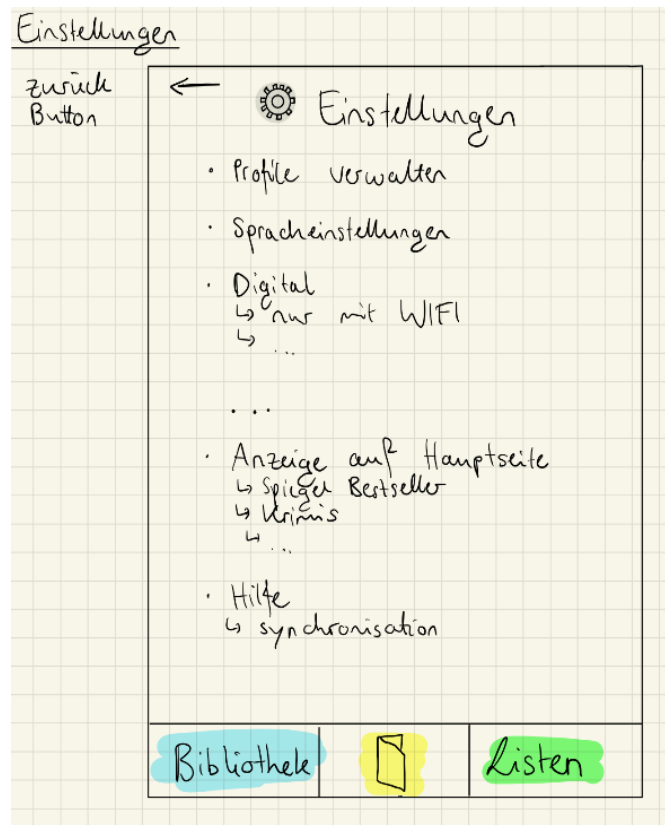 Einstellungen
zurück
Button
←
Einstellungen
· Profile verwalten
· Spracheinstellungen
· Digital
↳ nur mit WIFI
↳ ...
...
· Anzeige auf Hauptseite
↳ Spiegel Bestseller
↳ Krimis
↳ ...
· Hilfe
↳ synchronisation
Bibliothek
Listen